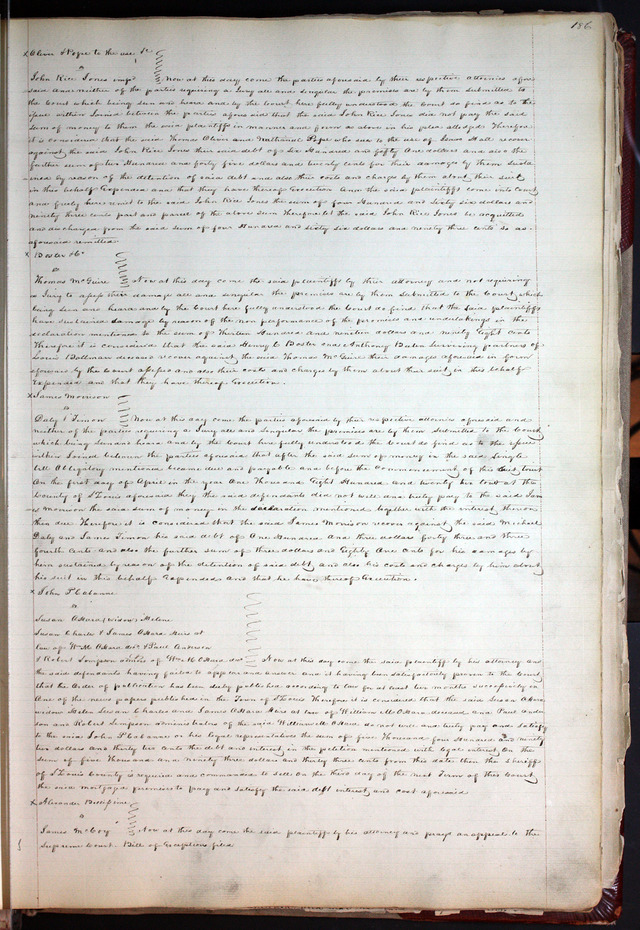 186
x Oliver & Pope to the use &c
vs
John Rice Jones impd Now at this day come the parties aforesaid by their respective attornies afore
said and neither of the parties requiring a Jury all and singular the premises are by them submitted to
the Court which being seen and heard and by the Court here fully understood the Court do find as to the
issue within Joined between the parties aforesaid that the said John Rice Jones did not pay the said
sum of money to them the said plaintiffs in manner and form as above in his plea alledged Therefore
it is considered that the said Thomas Oliver and Nathaniel Pope who sue to the use of Hall recover
against the said John Rice Jones their said debt of Six Hundred and fifty One dollars and also the
further sum of two Hundred and forty five dollars and twenty cents for their damages by them susta
ined by reason of the detention of said debt and also their costs and charges by them about their suit
in this behalf Expended and that they have thereof Execution And the said plaintiffs come into Court
and freely here remit to the said John Rice Jones the sum of four Hundred and sixty six dollars and
ninety three cents part and parcel of the above sum Therefore let the said John Rice Jones be acquitted
and discharged from the said sum of four Hundred and sixty six dollars and ninety three cents so as
aforesaid remitted
x Boster &c
vs
Thomas McGuire Now at this day come the said plaintiffs by their attorney and not requiring
a Jury to assess their damage all and singular the premises are by them submitted to the Court which
being seen and heard and by the Court here fully understood the Court do find that the said plaintiffs
have sustained damages by reason of the non performance of the promises and undertakings in the
declaration mentioned to the sum of Thirteen Hundred and nineteen dollars and ninety Eight cents
Therefore it is considered that the said Henry C Boster and Anthony Surviving partners of
Louis deceased recover against the said Thomas McGuire their damages aforesaid in form
aforesaid by the Court assessed and also their costs and charges by them about their suit in this behalf
Expended and that they have thereof Execution.
x James Morrison
vs
Daly & Timon Now at this day come the parties aforesaid by their respective attornies aforesaid and
neither of the parties requiring a Jury all and Singular the premises are by them Submitted to the Court
which being seen and heard and by the Court here fully understood the Court do find as to the issue
within Joined between the parties aforesaid that after the said sum of money in the said Single
bill Obligatory mentioned became due and payable and before the Commencement of this suit
On the first day of April in the year One Thousand Eight Hundred and twenty two at the
County of St Louis aforesaid they the said defendants did not well and truly pay to the said Jam
es Morrison the said sum of money in the declaration mentioned together with the interest thereon
then due Therefore it is considered that the said James Morrison recover against the said Michael
Daly and James Timon his said debt of One Hundred and three dollars forty three and three
fourth Cents and also the further sum of three dollars and Eighty One cents for his damages by
him sustained by reason of the detention of said debt and also his costs and charges by him about
his suit in this behalf Expended and that he have thereof Execution.
x John P Cabanne
vs
Susan OHara (widow) Helene
Susan Charles & James OHara Heirs at
law of Wm M OHara decd & Paul Anderson
& Robert Simpson admrs of Wm M OHara decd Now at this day come the said plaintiff by his attorney and
the said defendants having failed to appear and answer and it having been Satisfactorily proven to the Court
that the Order of publication has been duly published according to law for at least two months successively in
One of the news papers published in the Town of St Louis Therefore it is considered that the said Susan OHara
widow Helen Susan Charles and James OHara Heirs at law of William M OHara deceased and Paul Ander
son and Robert Simpson administrators of the said William M OHara do well and truly pay and Satisfy
to the said John P Cabanne or his legal representatives the sum of five Thousand four Hundred and ninety
two dollars and thirty two cents the debt and interest in the petition mentioned with legal interest on the
sum of five Thousand and ninety three dollars and thirty three cents from this date then the Sheriff
of St Louis County is required and commanded to sell on the third day of the next Term of this Court
the said mortgaged premises to pay and satisfy the said debt interest and cost aforesaid
x Alexander Bellissime
vs
James McCoy Now at this day come the said plaintiff by his attorney and prays an appeal to the
Supreme Court. Bill of Exceptions filed